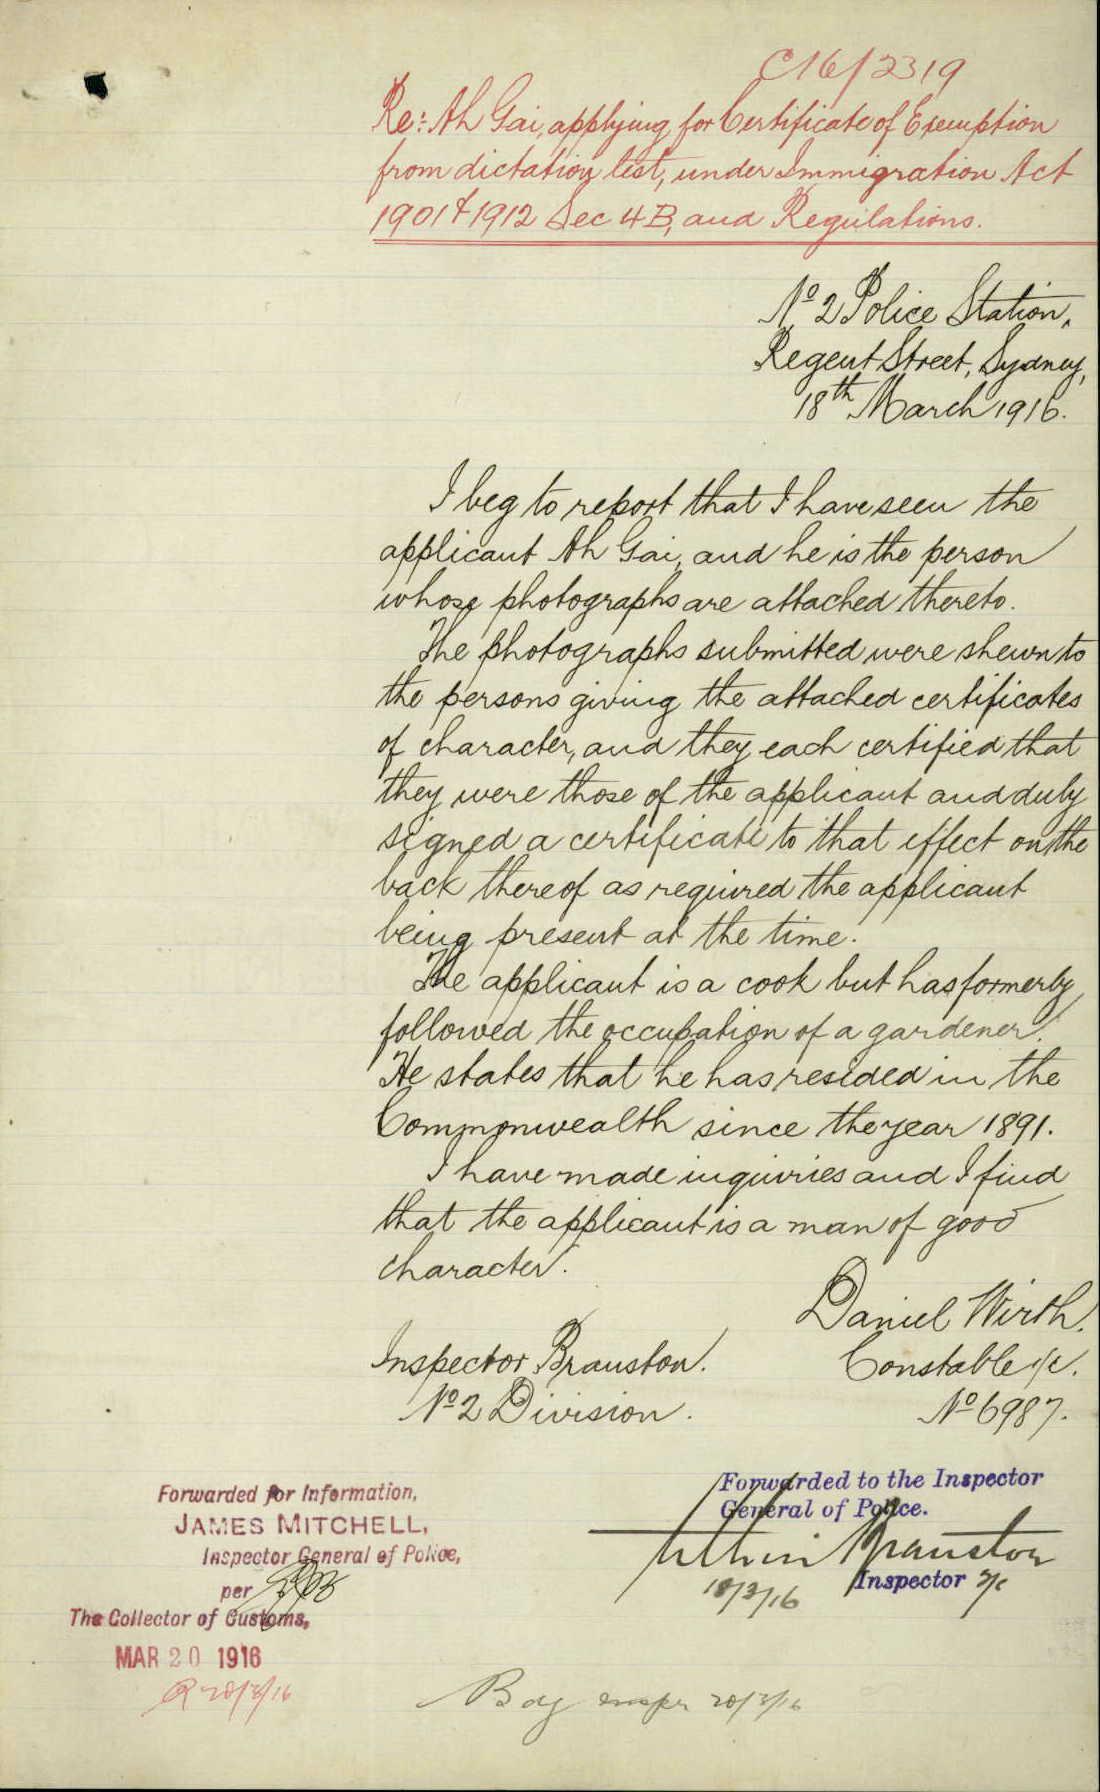 C16/2319
Re: Ah Gai, applying for Certificate of Exemption
from dictation test, under Immigration Act
1901 & 1912 Sec 4B, and Regulations.
No 2 Police Station,
Regent Street, Sydney,
18th March 1916.
I beg to report that I have seen the
applicant Ah Gai, and he is the person
whose photographs are attached thereto.
The photographs submitted were shewn to
the persons giving the attached certificates
of character, and they each certified that
they were those of the applicant and duly
signed a certificate to that effect on the
back thereof as required the applicant
being present at the time.
The applicant is a cook but has formerly
followed the occupation of a gardener.
He states that he has resided in the
Commonwealth since the year 1891.
I have made inquiries and I find
that the applicant is a man of good
character.
Daniel Wirth.
Constable 1/c.
No 6987.
Inspector Branston.
No 2 Division.
Forwarded to the Inspector
General of Police.
Branston
Inspector
18/3/16
Forwarded for Information,
JAMES MITCHELL,
Inspector General of Police,
per
The Collector of Customs,
MAR 20 1916
20/3/16
Bdg Inspr 20/3/16